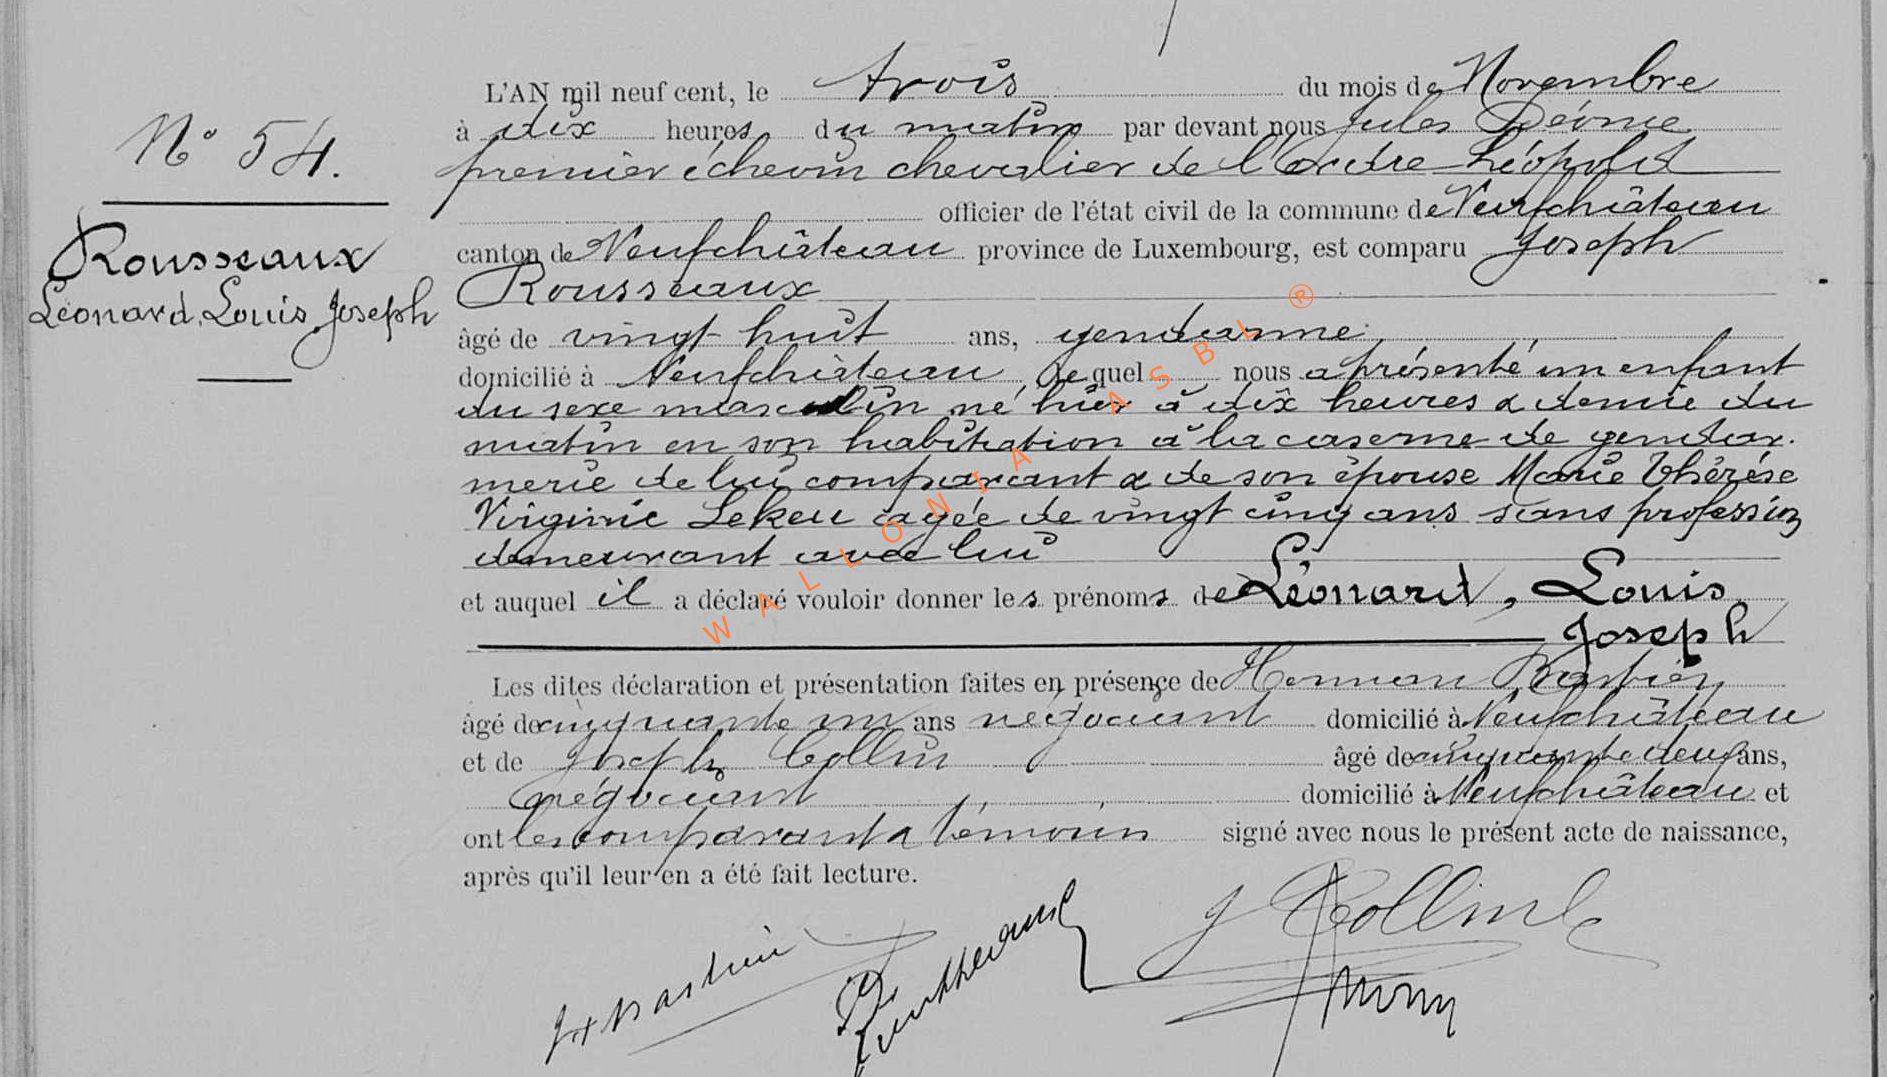 N° 54.
Rousseaux
Léonard, Louis Joseph
L'AN mil neuf cent, le trois du mois de Novembre
à dix heures du matin par devant nous Jules
premier échevin chevalier de l'Ordre Léopold
officier de l'état civil de la commune de Neufchâteau
canton de Neufchâteau province de Luxembourg, est comparu Joseph
Rousseaux
âgé de vingt huit ans, gendarme
domicilié à Neufchâteau lequel nous a présenté un enfant
du sexe masculin né hier à dix heures & demie du
matin en son habitation à la caserne de gendar-
merie de lui comparant & de son épouse Marie Thérèse
Virginie Lekeu agée de vingt cinq ans sans profession
demeurant avec lui
et auquel il a déclaré vouloir donner les prénoms de Léonard, Louis
Joseph
Les dites déclaration et présentation faites en présence de Herman
âgé de cinquante un ans négociant domicilié à Neufchâteau
et de Joseph Collin âgé de cinquante deux ans,
négociant domicilié à Neufchâteau et
ont les comparant & témoin signé avec nous le présent acte de naissance,
après qu'il leur en a été fait lecture.
J Collin
WALLONIA ASBL ®